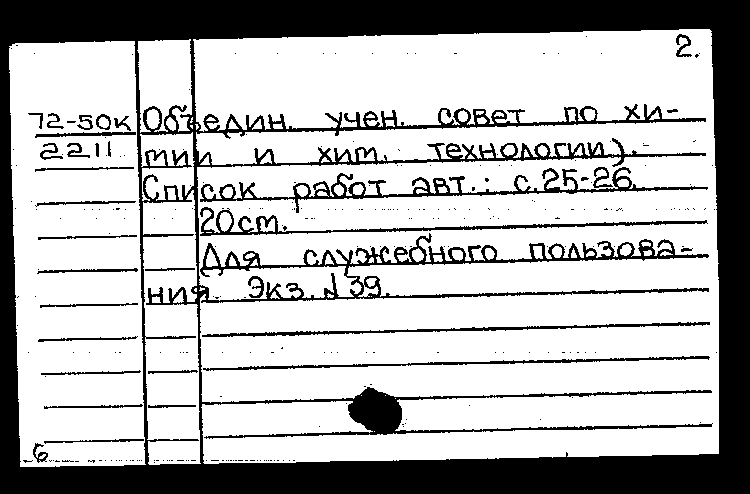 2.
72-50к Объедин. учен. совет по хи-
2211 мии и хим. технологии).
Список работ авт.: с.25-26.
20см.
Для служебного пользова-
ния. Экз. №39.
6